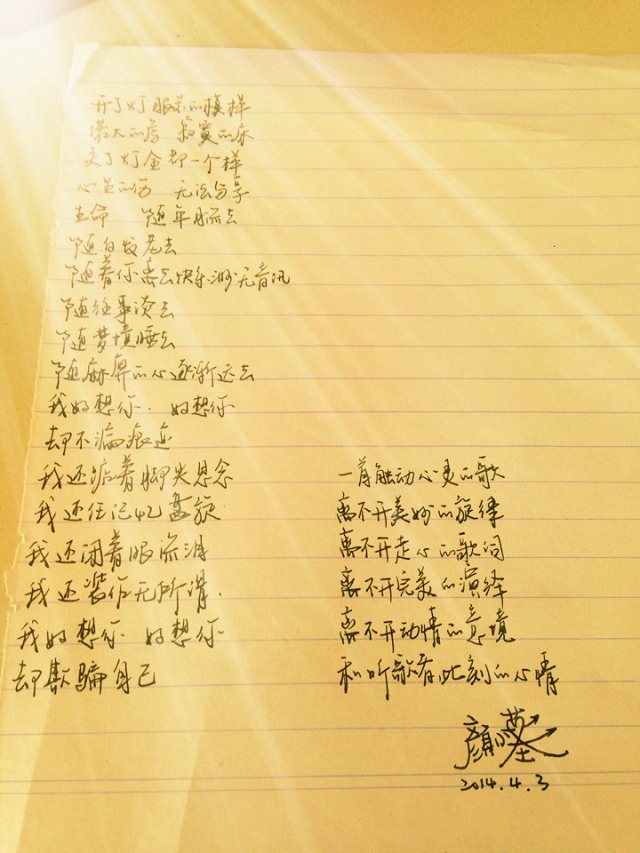 开了灯 眼前的模样
偌大的房 寂寞的床
关了灯全都一个样
心里的伤 无法分享
生命 随年月流去
随白发老去
随着你离去快乐渺无音讯
随往事淡去
随梦境睡去
随麻痹的心逐渐远去
我好想你.好想你
却不漏痕迹
我还踮着脚尖思念
我还任记忆盘旋
我还闭着眼流泪
我还装作无所谓.
我好想你.好想你
却欺骗自己
一首触动心灵的歌
离不开美妙的旋律
离不开走心的歌词
离不开完美的演绎
离不开动情的意境
和听歌者此刻的心情
2014.4.3